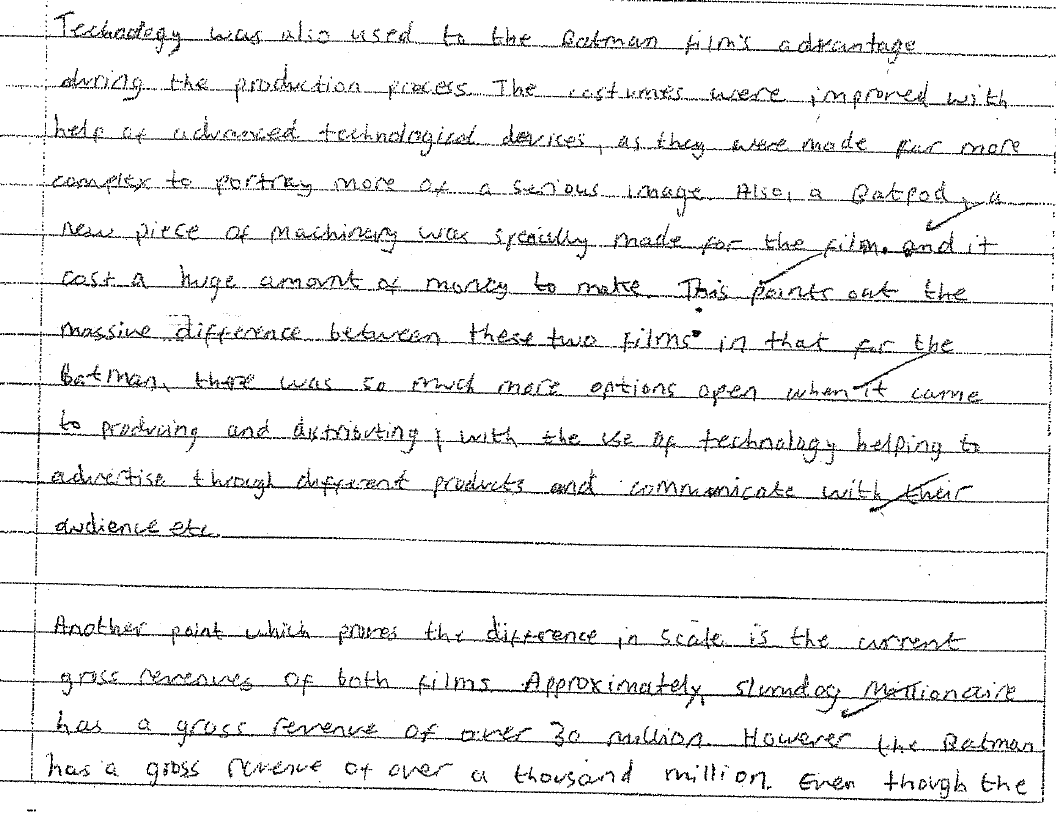 Technology was also used to the Batman film's advantage
during the production process. The costumes were improved with
help of advanced technological devices, as they were made far more
complex to portray more of a serious image. Also, a Batpod, a
new piece of machinery was specially made for the film. and it
cost a huge amount of money to make. This points out the
massive difference between these two films in that for the
Batman, there was so much more options open when it came
to producing and distributing, with the use of technology helping to
advertise through different products and communicate with their
audience etc.
Another point which proves the difference in scale is the current
gross revenues of both films. Approximately, Slumdog Millionaire
has a gross revenue of over 30 million. However the Batman
has a gross revenue of over a thousand million. Even though the